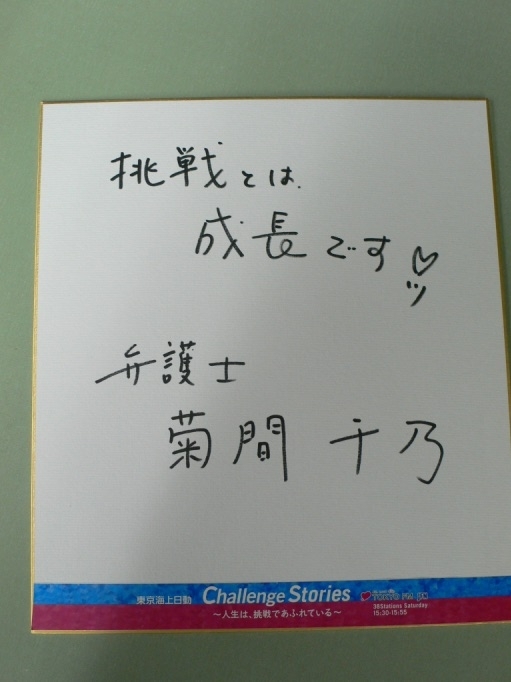 挑戦とは、
成長です♡
弁護士
菊間 千乃
東京海上日動 Challenge Stories
〜人生は、挑戦であふれている〜
TOKYO FM
38Stations Saturday
15:30-15:55